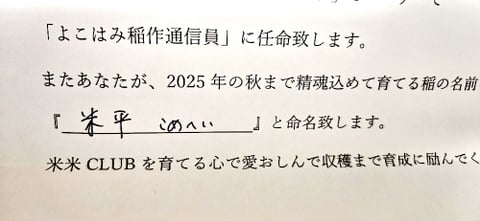 「よこはみ稲作通信員」に任命致します。
またあなたが、2025 年の秋まで精魂込めて育てる稲の名前
『 米平 こめへい 』と命名致します。
米米 CLUB を育てる心で愛おしんで収穫まで育成に励んでく